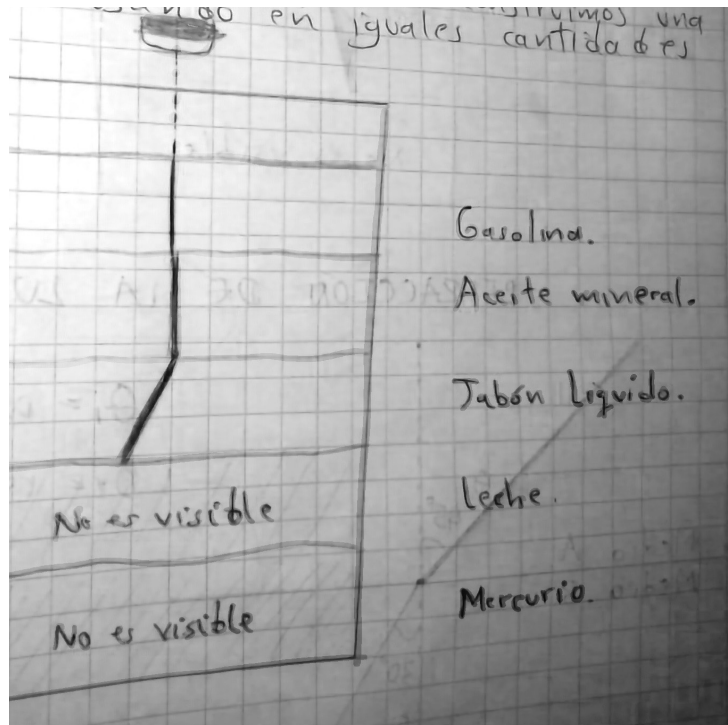 en iguales cantidades
una
Gasolina.
Aceite mineral.
Jabón líquido.
leche.
Mercurio.
No es visible
No es visible